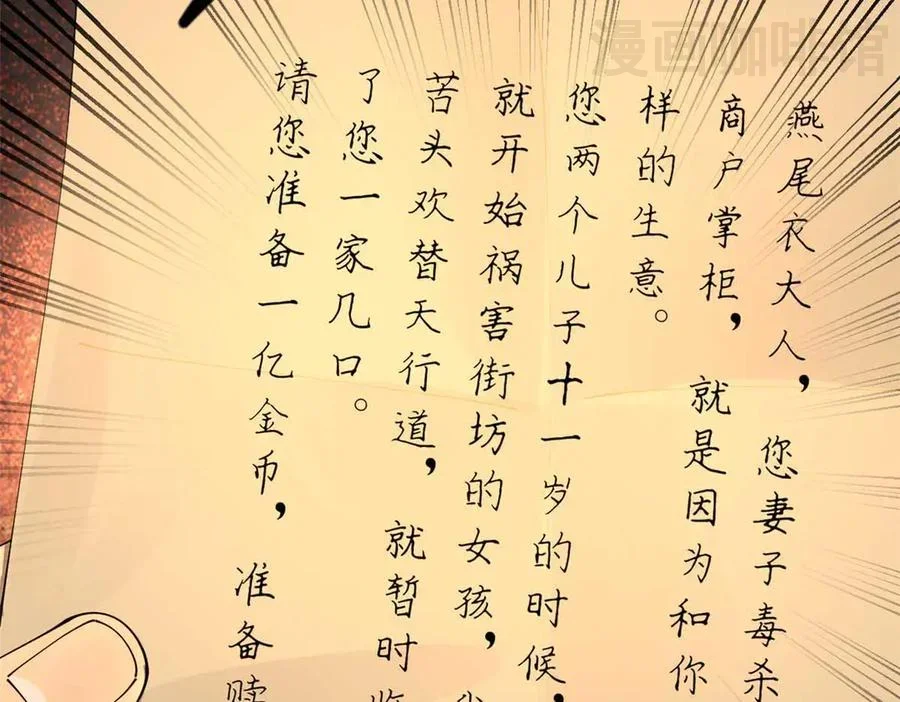 漫画咖啡馆
燕尾衣大人，您妻子毒杀
商户掌柜，就是因为和你
样的生意。
您两个儿子十一岁的时候，
就开始祸害街坊的女孩，
苦头欢替天行道，就暂时
了您一家几口。
请您准备一亿金币，准备赎